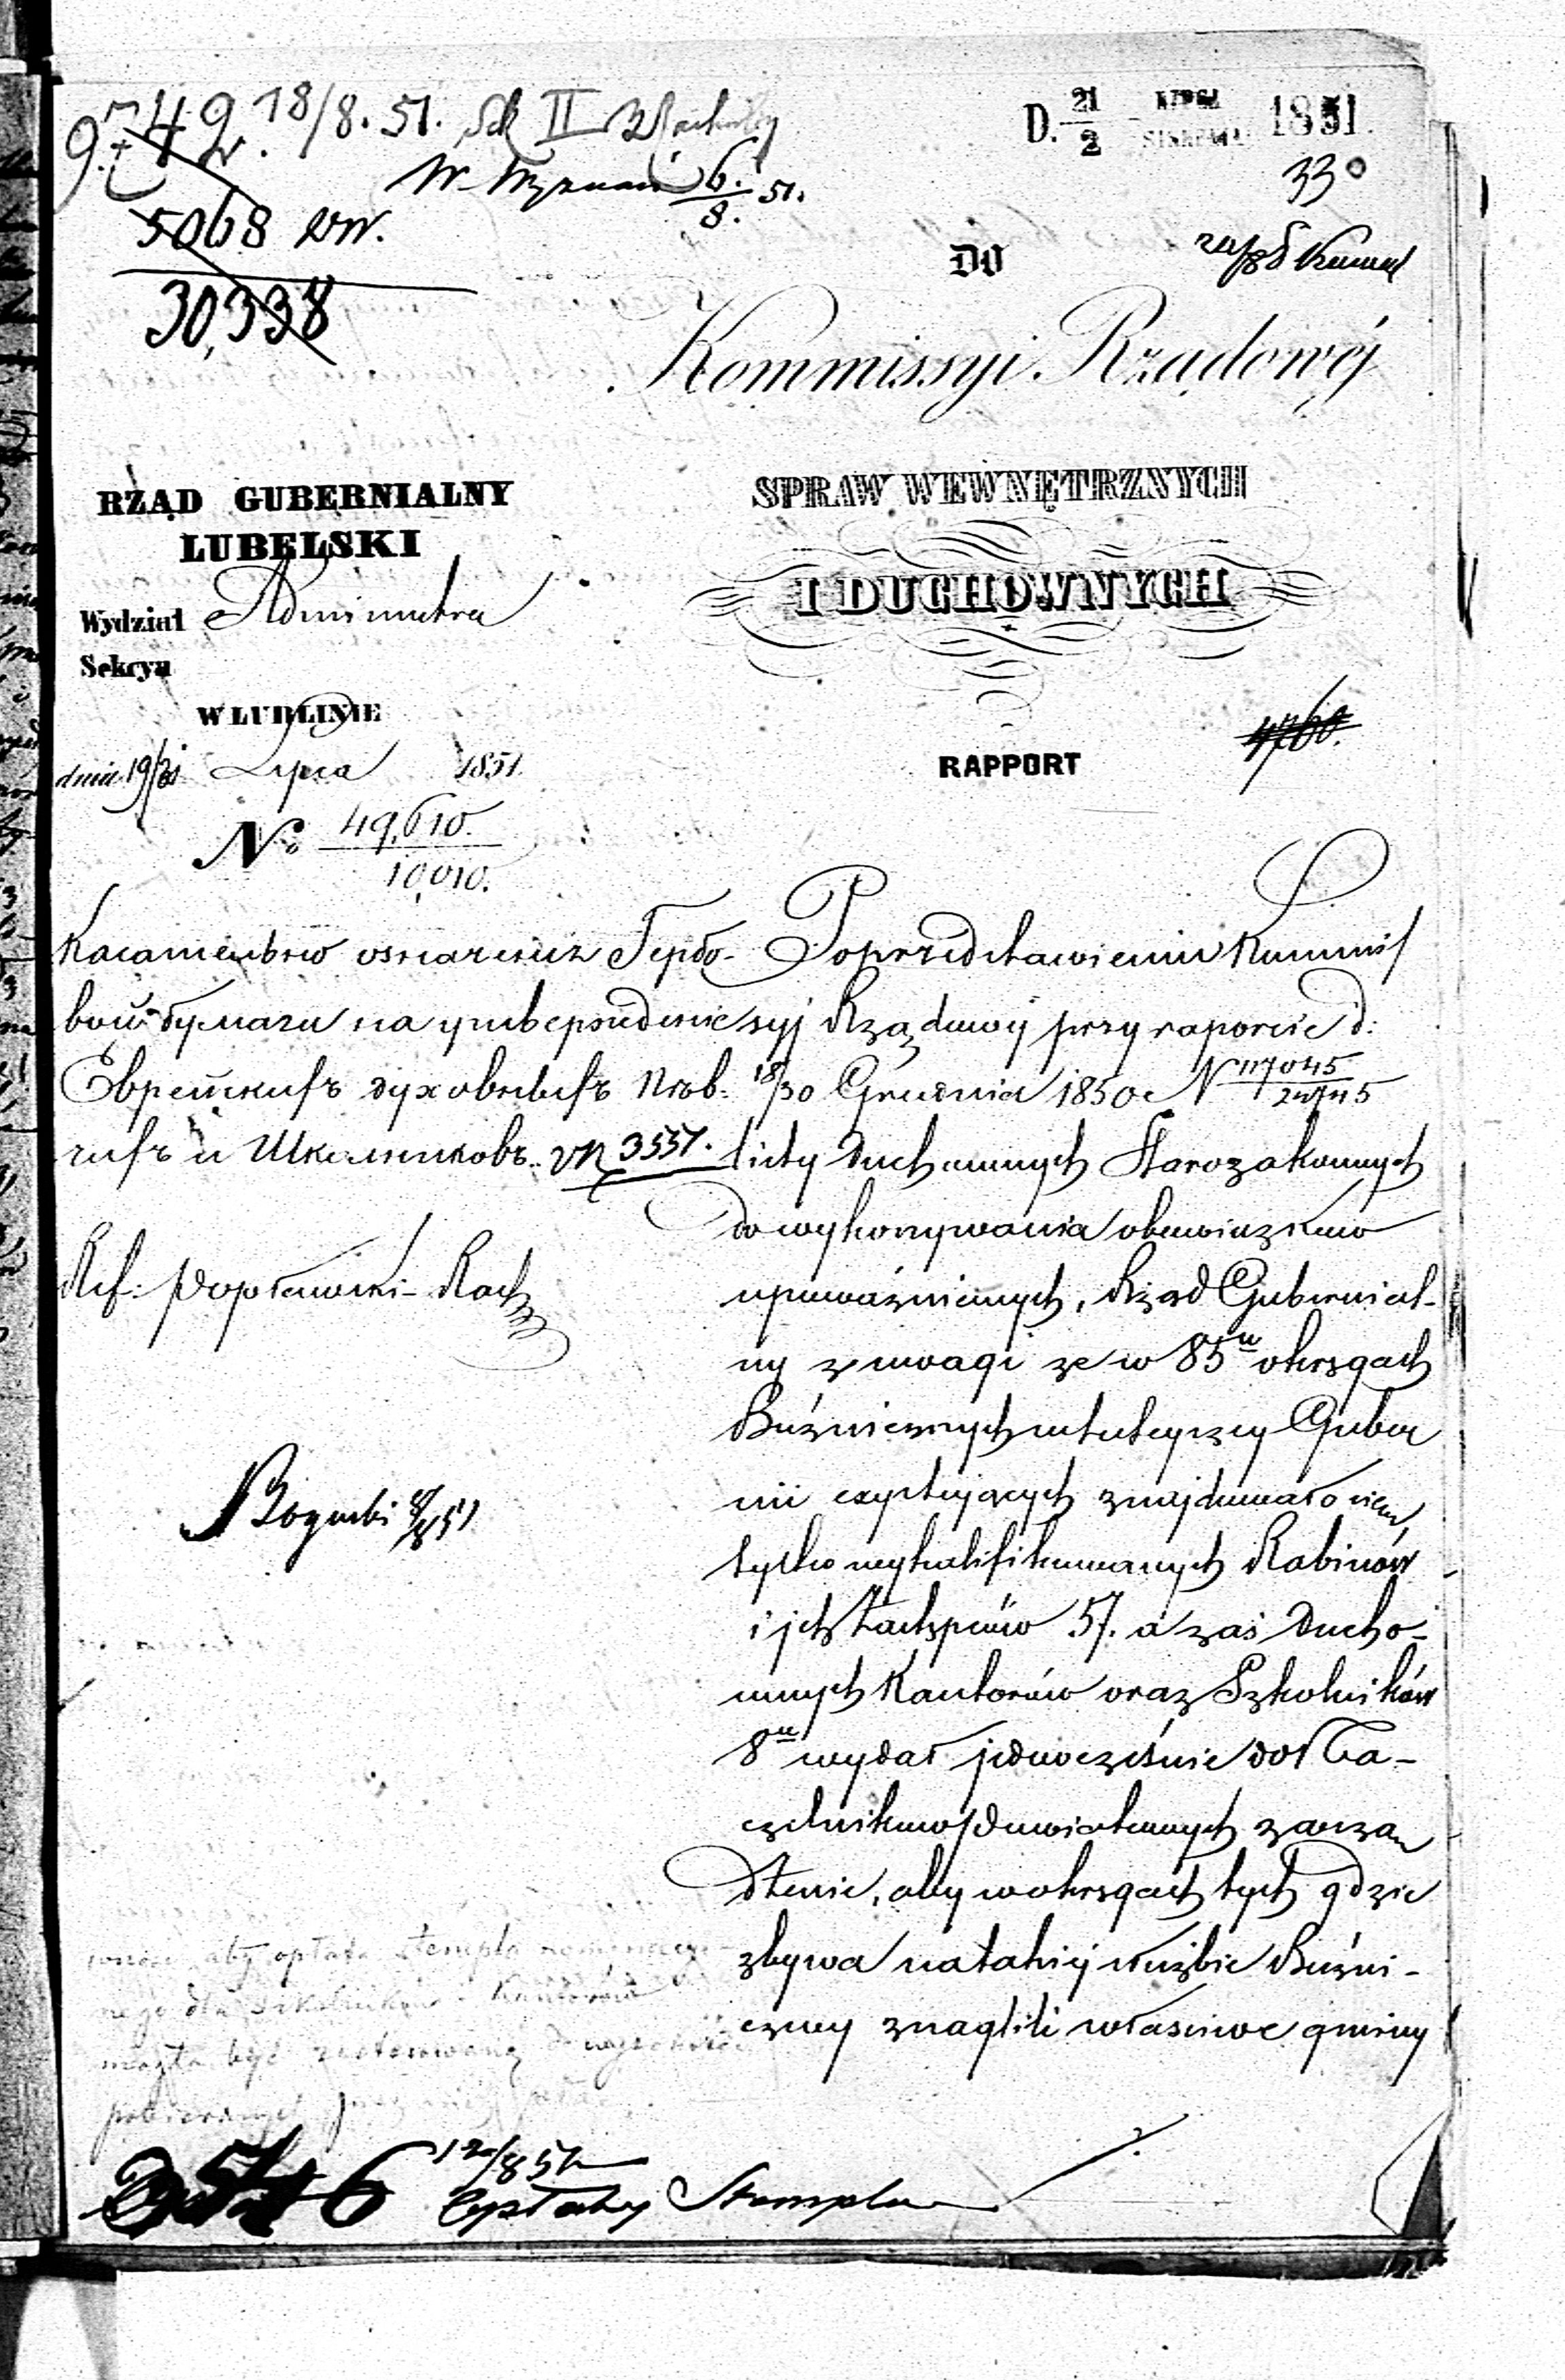 9742. 18/8. 51. Sek II
W Wyznań 6/8. 51.
5068 WW.
30,338
D. 21/2 LIPCA SIERPNIA 1851.
33°
DO
Kommissyi Rządowéj
SPRAW WEWNĘTRZNYCH
I DUCHOWNYCH
RZĄD GUBERNIALNY
LUBELSKI
Wydział Administra
Sekcya
W LUBLINIE
dnia 19/31 Lipca 1851.
No 49,610.
10,010.
4760.
RAPPORT
Касательно Гербо-
вой бумаги на
Еврейскихъ духовныхъ
и Школьниковъ. 3557.
Ref:
Rogucki 8/8 51
Po przedstawieniu Kommis
syj Rządowéj przy raporcie d:
18/30 Grudnia 1850 r N 117045
24745
listy Duchownych Starozakonnych
do wykonywania obowiązków
upoważnionych, Rząd Gubernial-
ny z uwagi że w 85u okręgach
Bużnicznych w tutejszey Guber
nii exystujących znajdowało się
tylko wykwalifikowanych Rabinów
i ich Zastępców 57. a zaś Ducho-
wnych Kantorów oraz Szkolników
8u wydał jednocześnie do Na-
czelników Powiatowych zarzą
dzenie, aby w okręgach tych gdzie
zbywa na takiéj służbie Bużni-
cznej znaglili właściwe gminy
wnosi aby opłata stempla
nego dla Szkolników i Kantorów
mogła być zastosowaną do wysokości
pobieranych przez nich
3546 12/8 51
Opłaty Stempla